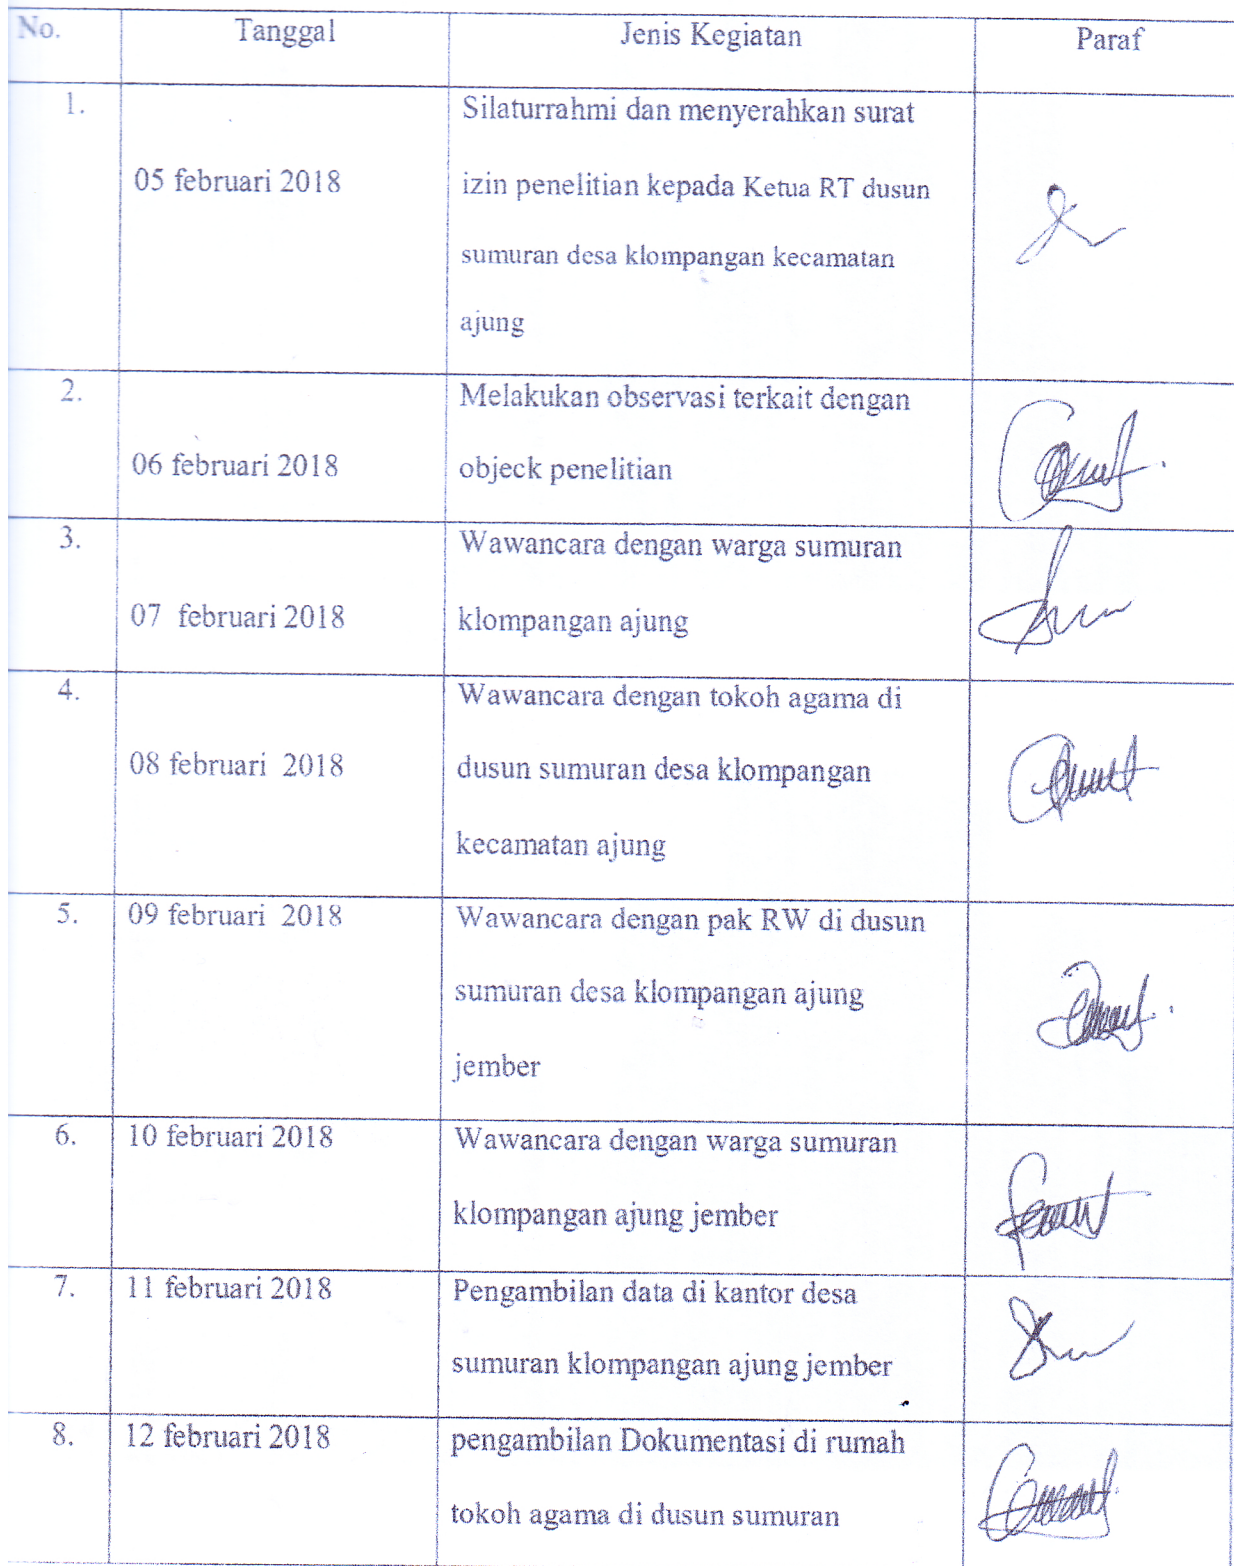 No. Tanggal Jenis Kegiatan Paraf
1. Silaturrahmi dan menyerahkan surat
05 februari 2018 izin penelitian kepada Ketua RT dusun
sumuran desa klompangan kecamatan
ajung
2. Melakukan observasi terkait dengan
06 februari 2018 objeck penelitian
3. Wawancara dengan warga sumuran
07 februari 2018 klompangan ajung
4. Wawancara dengan tokoh agama di
08 februari 2018 dusun sumuran desa klompangan
kecamatan ajung
5. 09 februari 2018 Wawancara dengan pak RW di dusun
sumuran desa klompangan ajung
jember
6. 10 februari 2018 Wawancara dengan warga sumuran
klompangan ajung jember
7. 11 februari 2018 Pengambilan data di kantor desa
sumuran klompangan ajung jember
8. 12 februari 2018 pengambilan Dokumentasi di rumah
tokoh agama di dusun sumuran